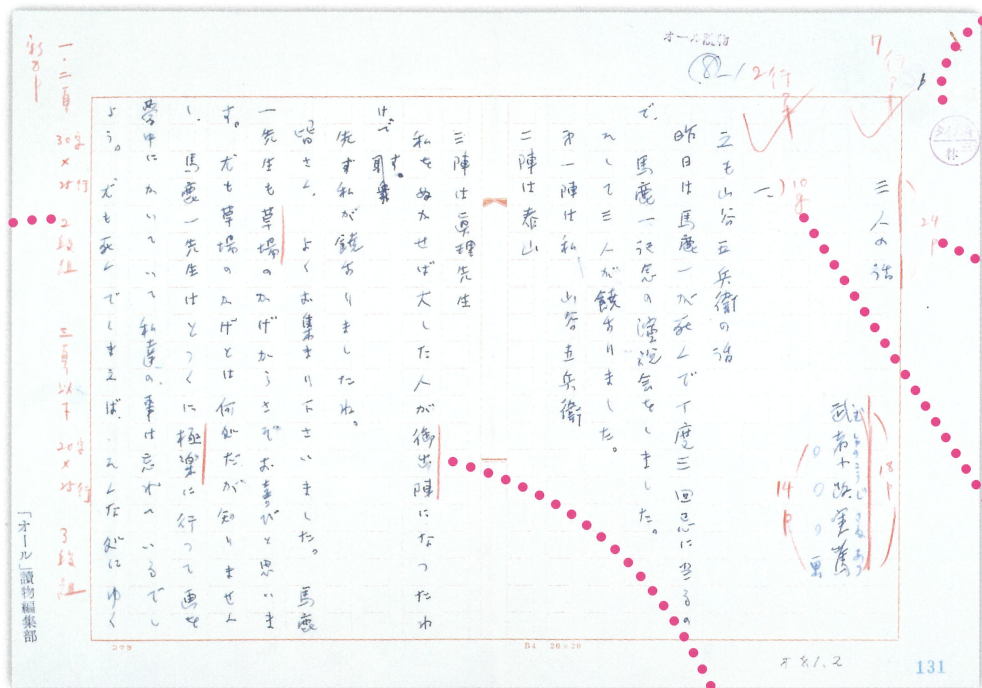 オール讀物
⑧-1
2行アキ
7行アキ
三人の話
24P
武者小路実篤
むしやのこうじさねあつ
18P
14P
一
立も山谷五兵衛の話
昨日は馬鹿一が死んで丁度三回忌に当るの
で、馬鹿一記念の演説会をしました。
そして三人が饒舌りました。
第一陣は私 山谷五兵衛
二陣は泰山
三陣は真理先生
私をぬかせば大した人が御出陣になつたわ
けです。
先ず私が饒舌りましたね。
皆さん、よくお集まり下さいました。馬鹿
一先生も草場のかげからさぞお喜びと思いま
す。尤も草場のかげとは何処だか知りません
し、馬鹿一先生はとつくに極楽に行つて画を
夢中にかいていて私達の事は忘れているでし
よう。尤も死んでしまえば、そんな処にゆく
一・二頁 30字×25行 2段組 三頁以下 20字×25行 3段組
「オール」讀物編集部
B4 20×20
オ81.2
131